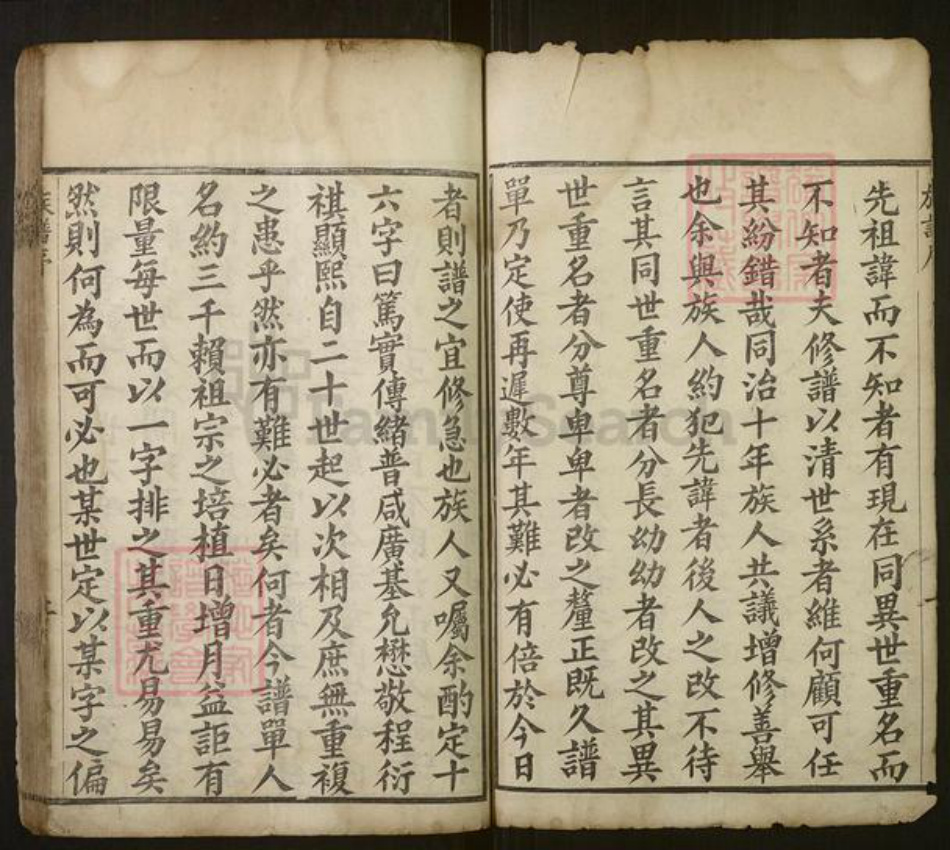 先祖諱而不知者有現在同異世重名而
不知者夫修譜以清世系者維何顧可任
其紛錯哉同治十年族人共議增修善舉
也余與族人約犯先諱者後人之改不待
言其同世重名者分長幼幼者改之其異
世重名者分尊卑卑者改之釐正既久譜
單乃定使再遲數年其難必有倍於今日
者則譜之宜修急也族人又囑余酌定十
六字曰篤實傳緒普咸廣基允懋敬程衍
祺顯熙自二十世起以次相及庶無重複
之患乎然亦有難必者矣何者今譜單人
名約三千賴祖宗之培植日增月益詎有
限量每世而以一字排之其重尤易易矣
然則何為而可必也某世定以某字之偏
族譜序
FamilySearch